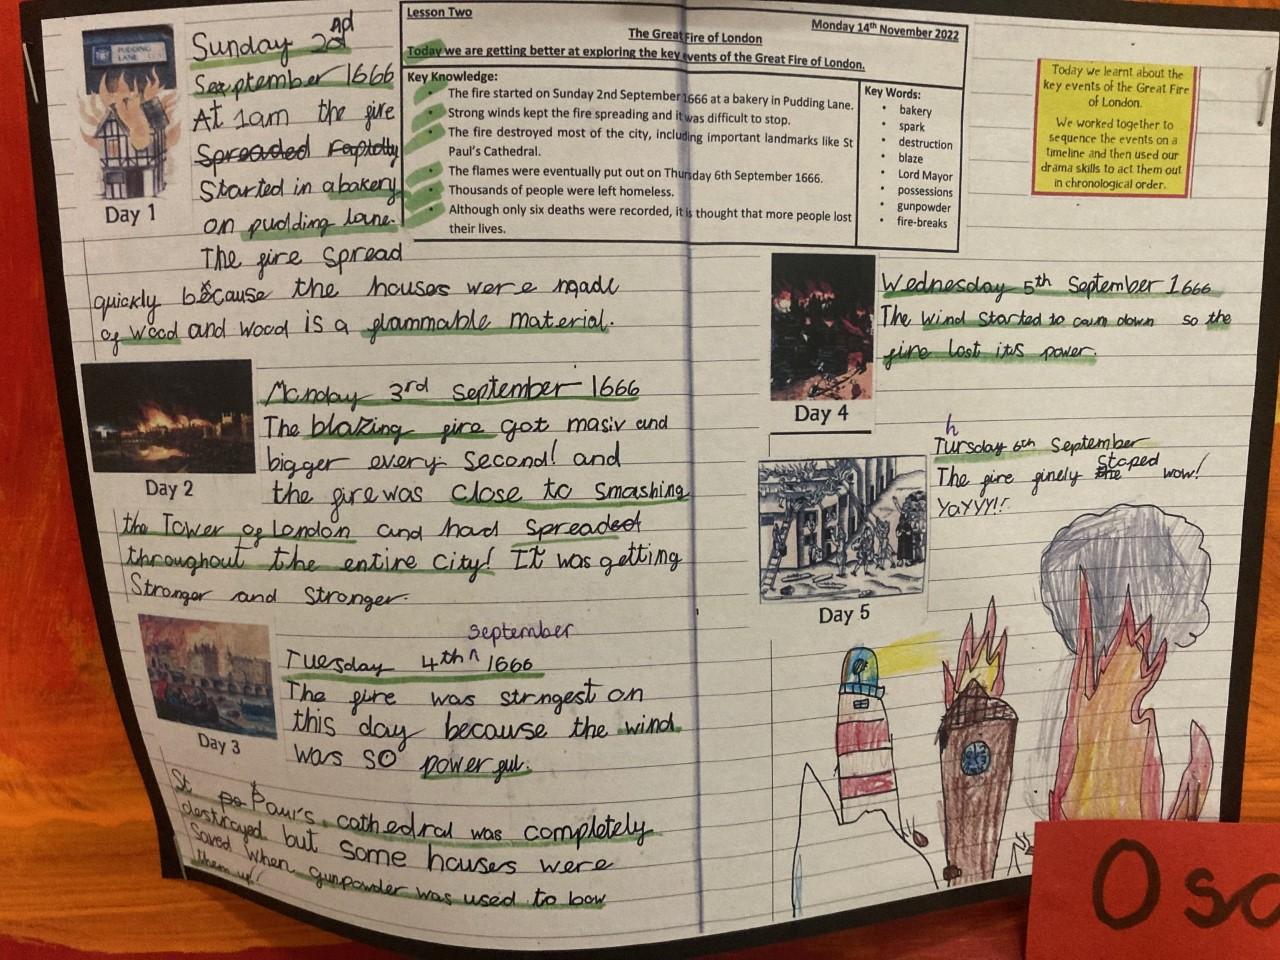 PUDDING
LANE
Day 1
Sunday 2nd
September 1666
At 1am the fire
Spreaded
Started in a bakery
on pudding lane.
The fire spread
quickly because the houses were made
of wood and wood is a flammable material.
Lesson Two
Monday 14th November 2022
The Great Fire of London
Today we are getting better at exploring the key events of the Great Fire of London.
Key Knowledge:
• The fire started on Sunday 2nd September 1666 at a bakery in Pudding Lane.
• Strong winds kept the fire spreading and it was difficult to stop.
• The fire destroyed most of the city, including important landmarks like St
Paul's Cathedral.
• The flames were eventually put out on Thursday 6th September 1666.
• Thousands of people were left homeless.
• Although only six deaths were recorded, it is thought that more people lost
their lives.
Key Words:
• bakery
• spark
• destruction
• blaze
• Lord Mayor
• possessions
• gunpowder
• fire-breaks
Today we learnt about the
key events of the Great Fire
of London.
We worked together to
sequence the events on a
timeline and then used our
drama skills to act them out
in chronological order.
Day 2
Monday 3rd September 1666
The blazing fire got masiv and
bigger every second! and
the fire was close to smashing
the Tower of London and had spreaded
throughout the entire city! It was getting
Stronger and Stronger.
Day 3
September
Tuesday 4th ^ 1666
The fire was strngest on
this day because the wind
was so powerful.
St Paur's cathedral was completely
destroyed but some houses were
saved when gunpowder was used to bow
them up!
Day 4
Wednesday 5th September 1666
The wind started to caum down so the
fire lost its power.
Day 5
h
Tursday 6th September
The fire finely staped wow!
YaYYY!!
Osc